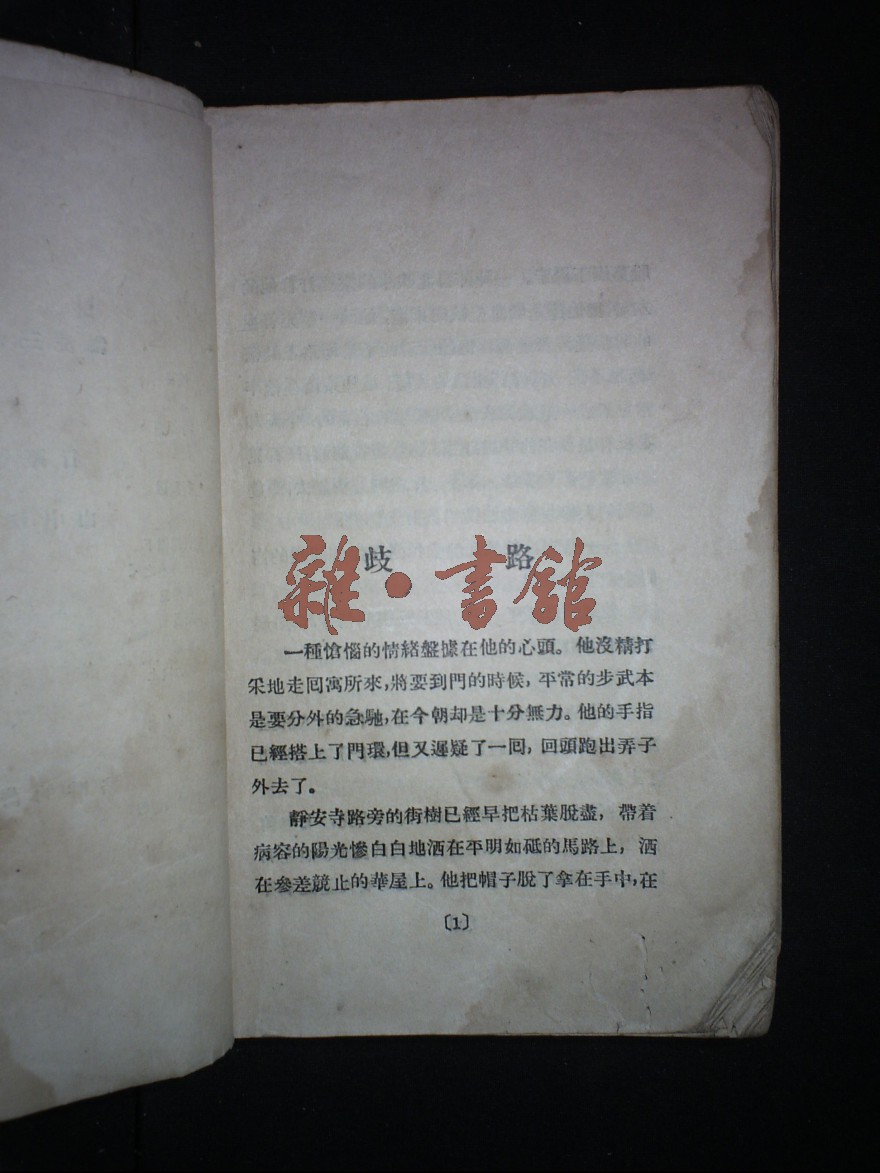 歧 路
雜·書館
一種愴惱的情緒盤據在他的心頭。他沒精打
采地走囘寓所來,將要到門的時候,平常的步武本
是要分外的急馳,在今朝却是十分無力。他的手指
已經搭上了門環,但又遲疑了一囘,囘頭跑出弄子
外去了。
靜安寺路旁的街樹已經早把枯葉脫盡,帶着
病容的陽光慘白白地洒在平明如砥的馬路上,洒
在參差競止的華屋上。他把帽子脫了拿在手中,在
〔1〕